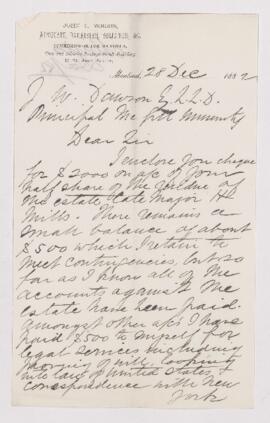 ADVOCATE, BARRISTER, SOLICITOR, &C.
Montreal, 28 Dec 1882
J W. Dawson Esq LLD
Principal McGill University
Dear Sir
I enclose you cheque
for $2000 on a/c of your
half share of the residue of
the estate, late Major
Mills. There remains a
small balance of about
$500 which I retain to
meet contingencies, but so
far as I know all of the
accounts against the
estate have been paid.
amongst other a/cs I have
paid $500 to myself for
legal services including
proving of will, looking
into law of United States, &
correspondence with New
York